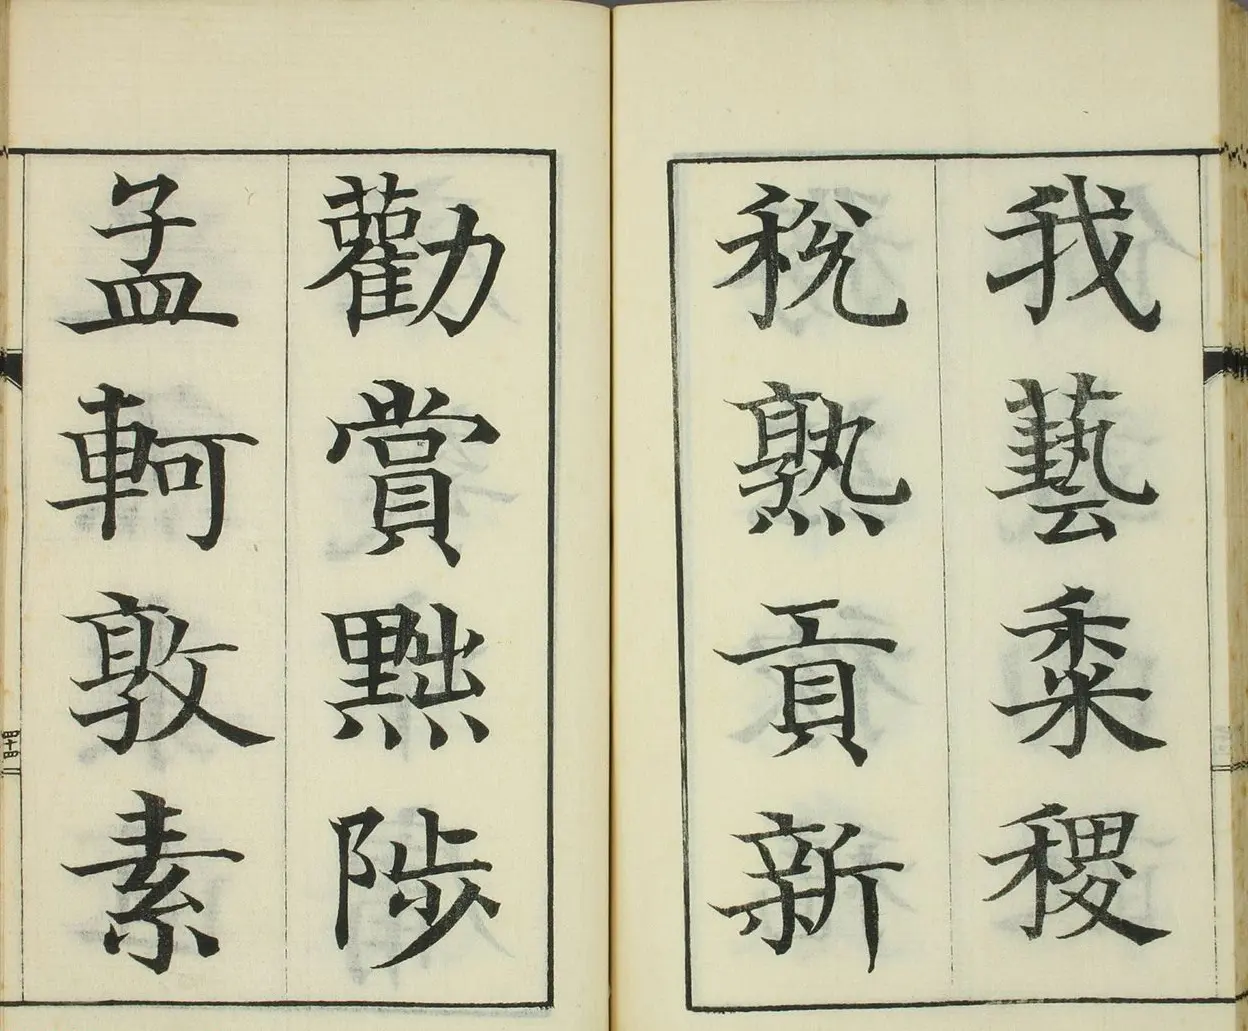 我藝黍稷
稅熟貢新
勸賞黜陟
孟軻敦素